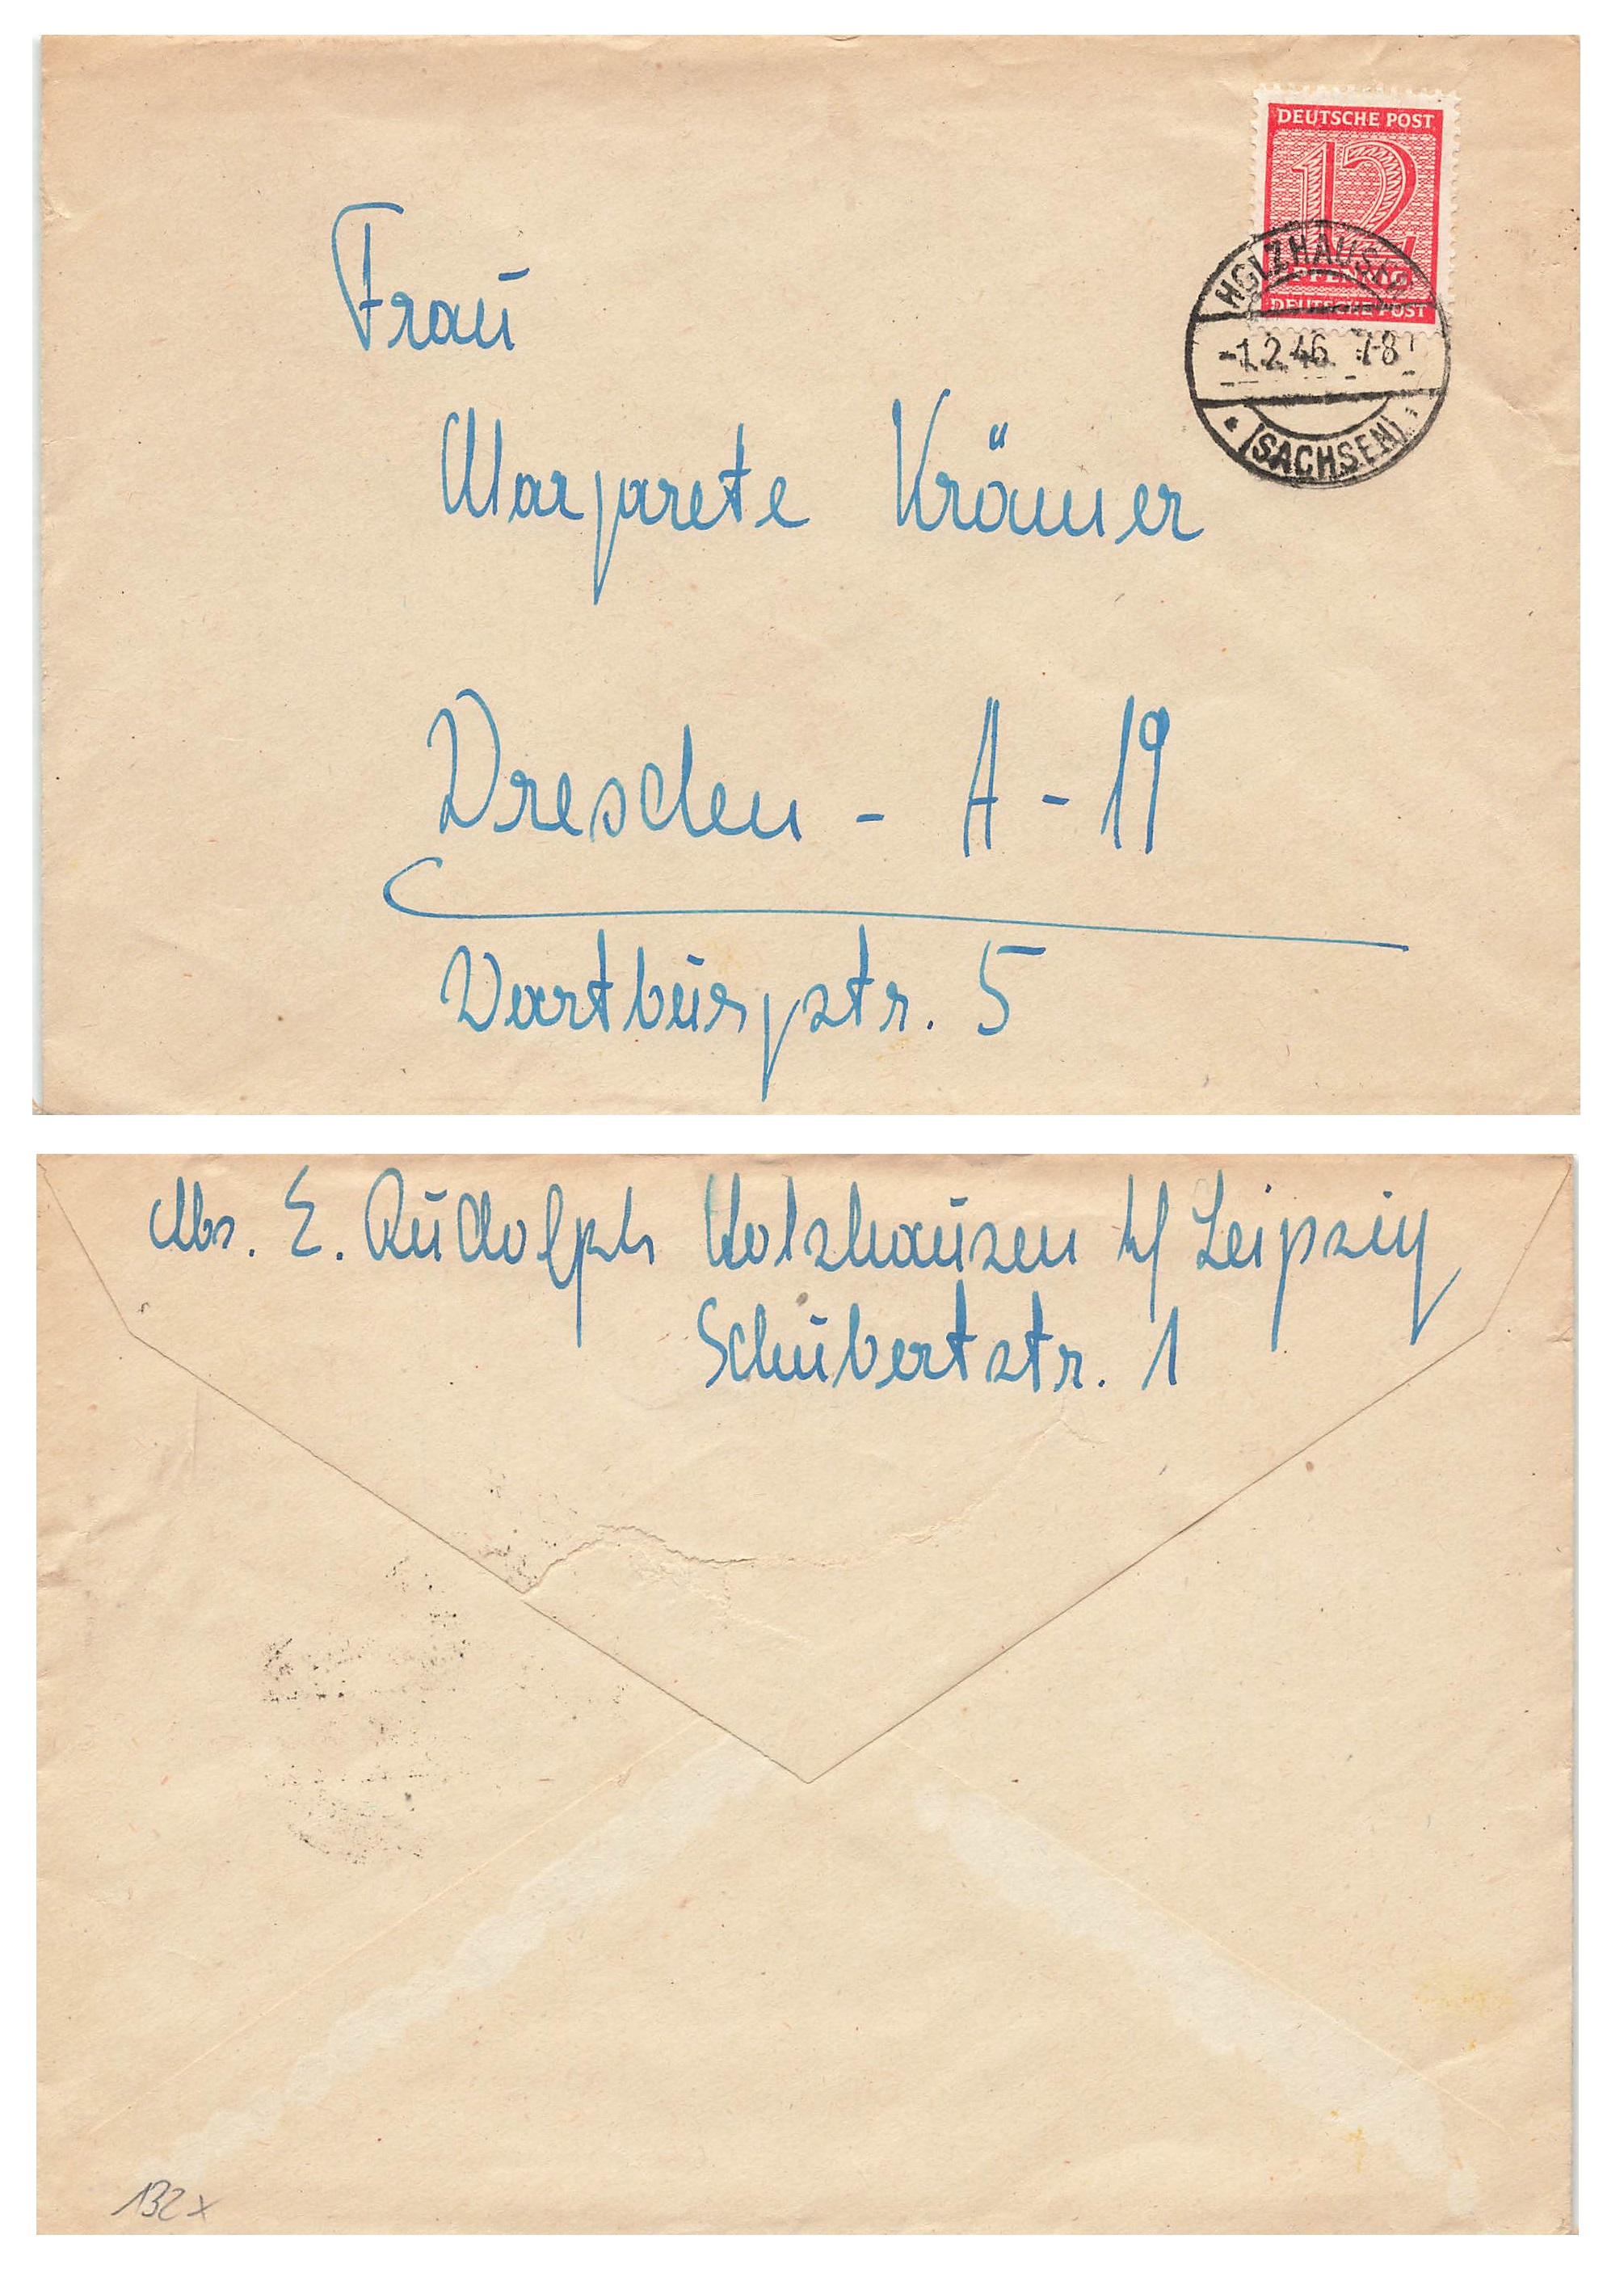 DEUTSCHE POST
12
PFENNIG
DEUTSCHE POST
HOLZHAUSEN
-1.2.46. 7-8
(SACHSEN)
Frau
Margarete Krämer
Dresden - A - 19
Wartburgstr. 5
Abs. E. Rudolph Holzhausen b/ Leipzig
Schubertstr. 1
132x